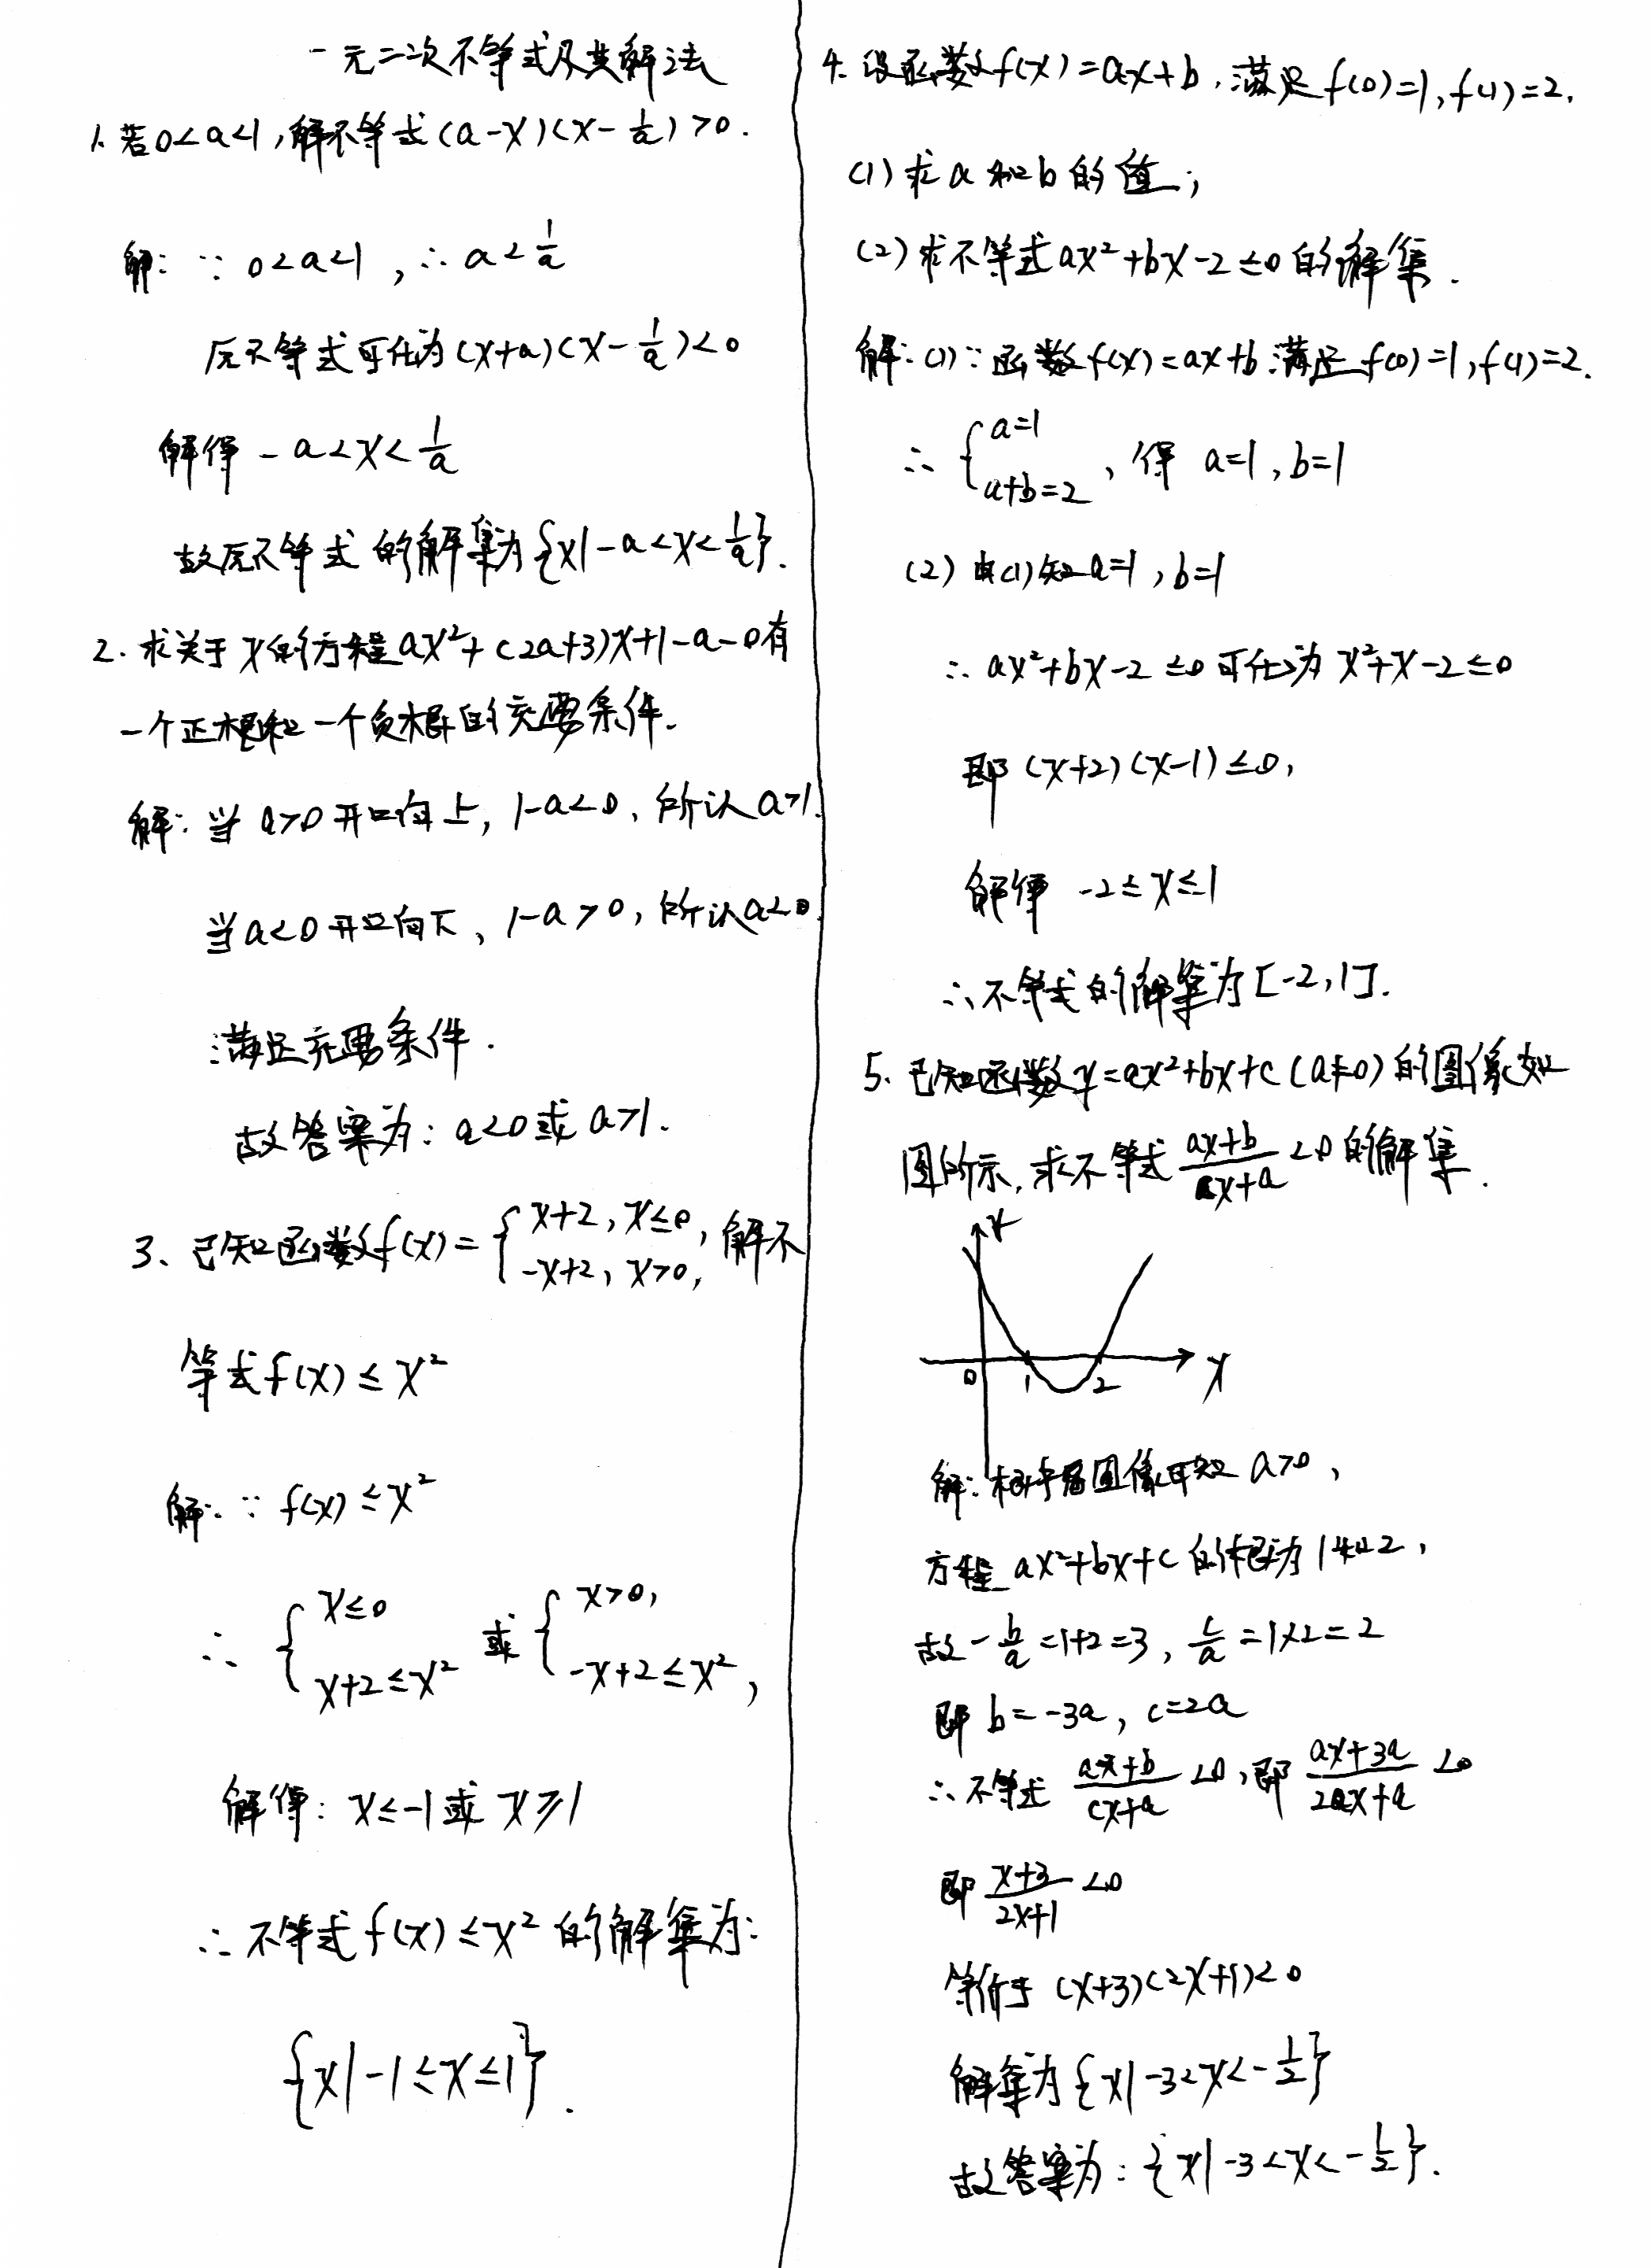 一元二次不等式及其解法
1. 若0<a<1,解不等式(a-x)(x-1/a)>0.
解: ∵ 0<a<1, ∴ a<1/a
原不等式可化为(x+a)(x-1/a)<0
解得 -a<x<1/a
故原不等式的解集为{x|-a<x<1/a}.
2. 求关于x的方程ax²+(2a+3)x+1-a=0有
一个正根和一个负根的充要条件.
解: 当a>0开口向上, 1-a<0, 所以a>1.
当a<0开口向下, 1-a>0, 所以a<0.
满足充要条件.
故答案为: a<0或a>1.
3、已知函数f(x)={x+2, x≤0, -x+2, x>0, 解不
等式f(x)≤x²
解: ∵ f(x)≤x²
∴ {x≤0 x+2≤x² 或 {x>0, -x+2≤x²,
解得: x≤-1或x≥1
∴ 不等式f(x)≤x²的解集为:
{x|-1≤x≤1}.
4. 设函数f(x)=ax+b, 满足f(0)=1, f(1)=2.
(1)求a和b的值;
(2)求不等式ax²+bx-2≤0的解集.
解: (1)∵函数f(x)=ax+b满足f(0)=1, f(1)=2.
∴ {a=1 a+b=2, 得 a=1, b=1
(2) 由(1)知a=1, b=1
∴ ax²+bx-2≤0可化为x²+x-2≤0
即(x+2)(x-1)≤0,
解得 -2≤x≤1
∴不等式的解集为[-2,1].
5. 已知函数y=ax²+bx+c(a≠0)的图像如
图所示, 求不等式(ax+b)/(cx+a)<0的解集.
0 1 2 x
解: 根据图像可知a>0,
方程ax²+bx+c的根为1和2,
故-b/a=1+2=3, c/a=1×2=2
即 b=-3a, c=2a
∴不等式 (ax+b)/(cx+a)<0, 即 (ax+3a)/(2ax+a)<0
即 (x+3)/(2x+1)<0
等价于 (x+3)(2x+1)<0
解集为{x|-3<x<-1/2}
故答案为: {x|-3<x<-1/2}.